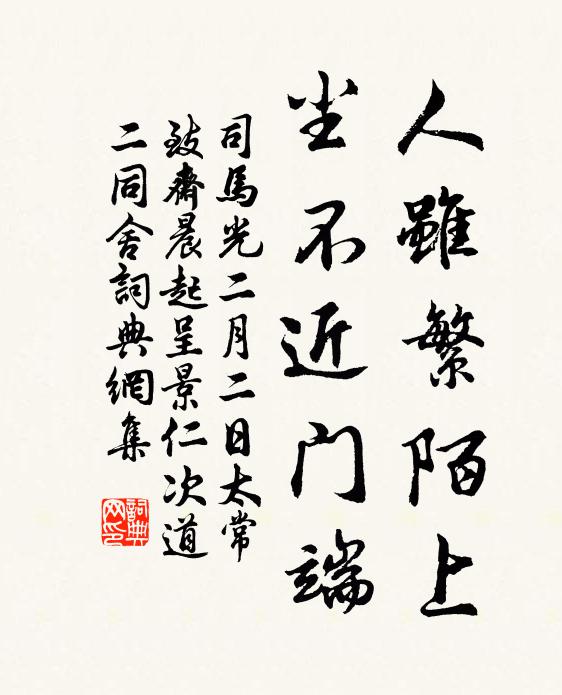 人雖繁陌上
尘不近门端
司馬光二月二日太常
致齋晨起呈景仁次道
二同舍詞典網集
詞典
网印